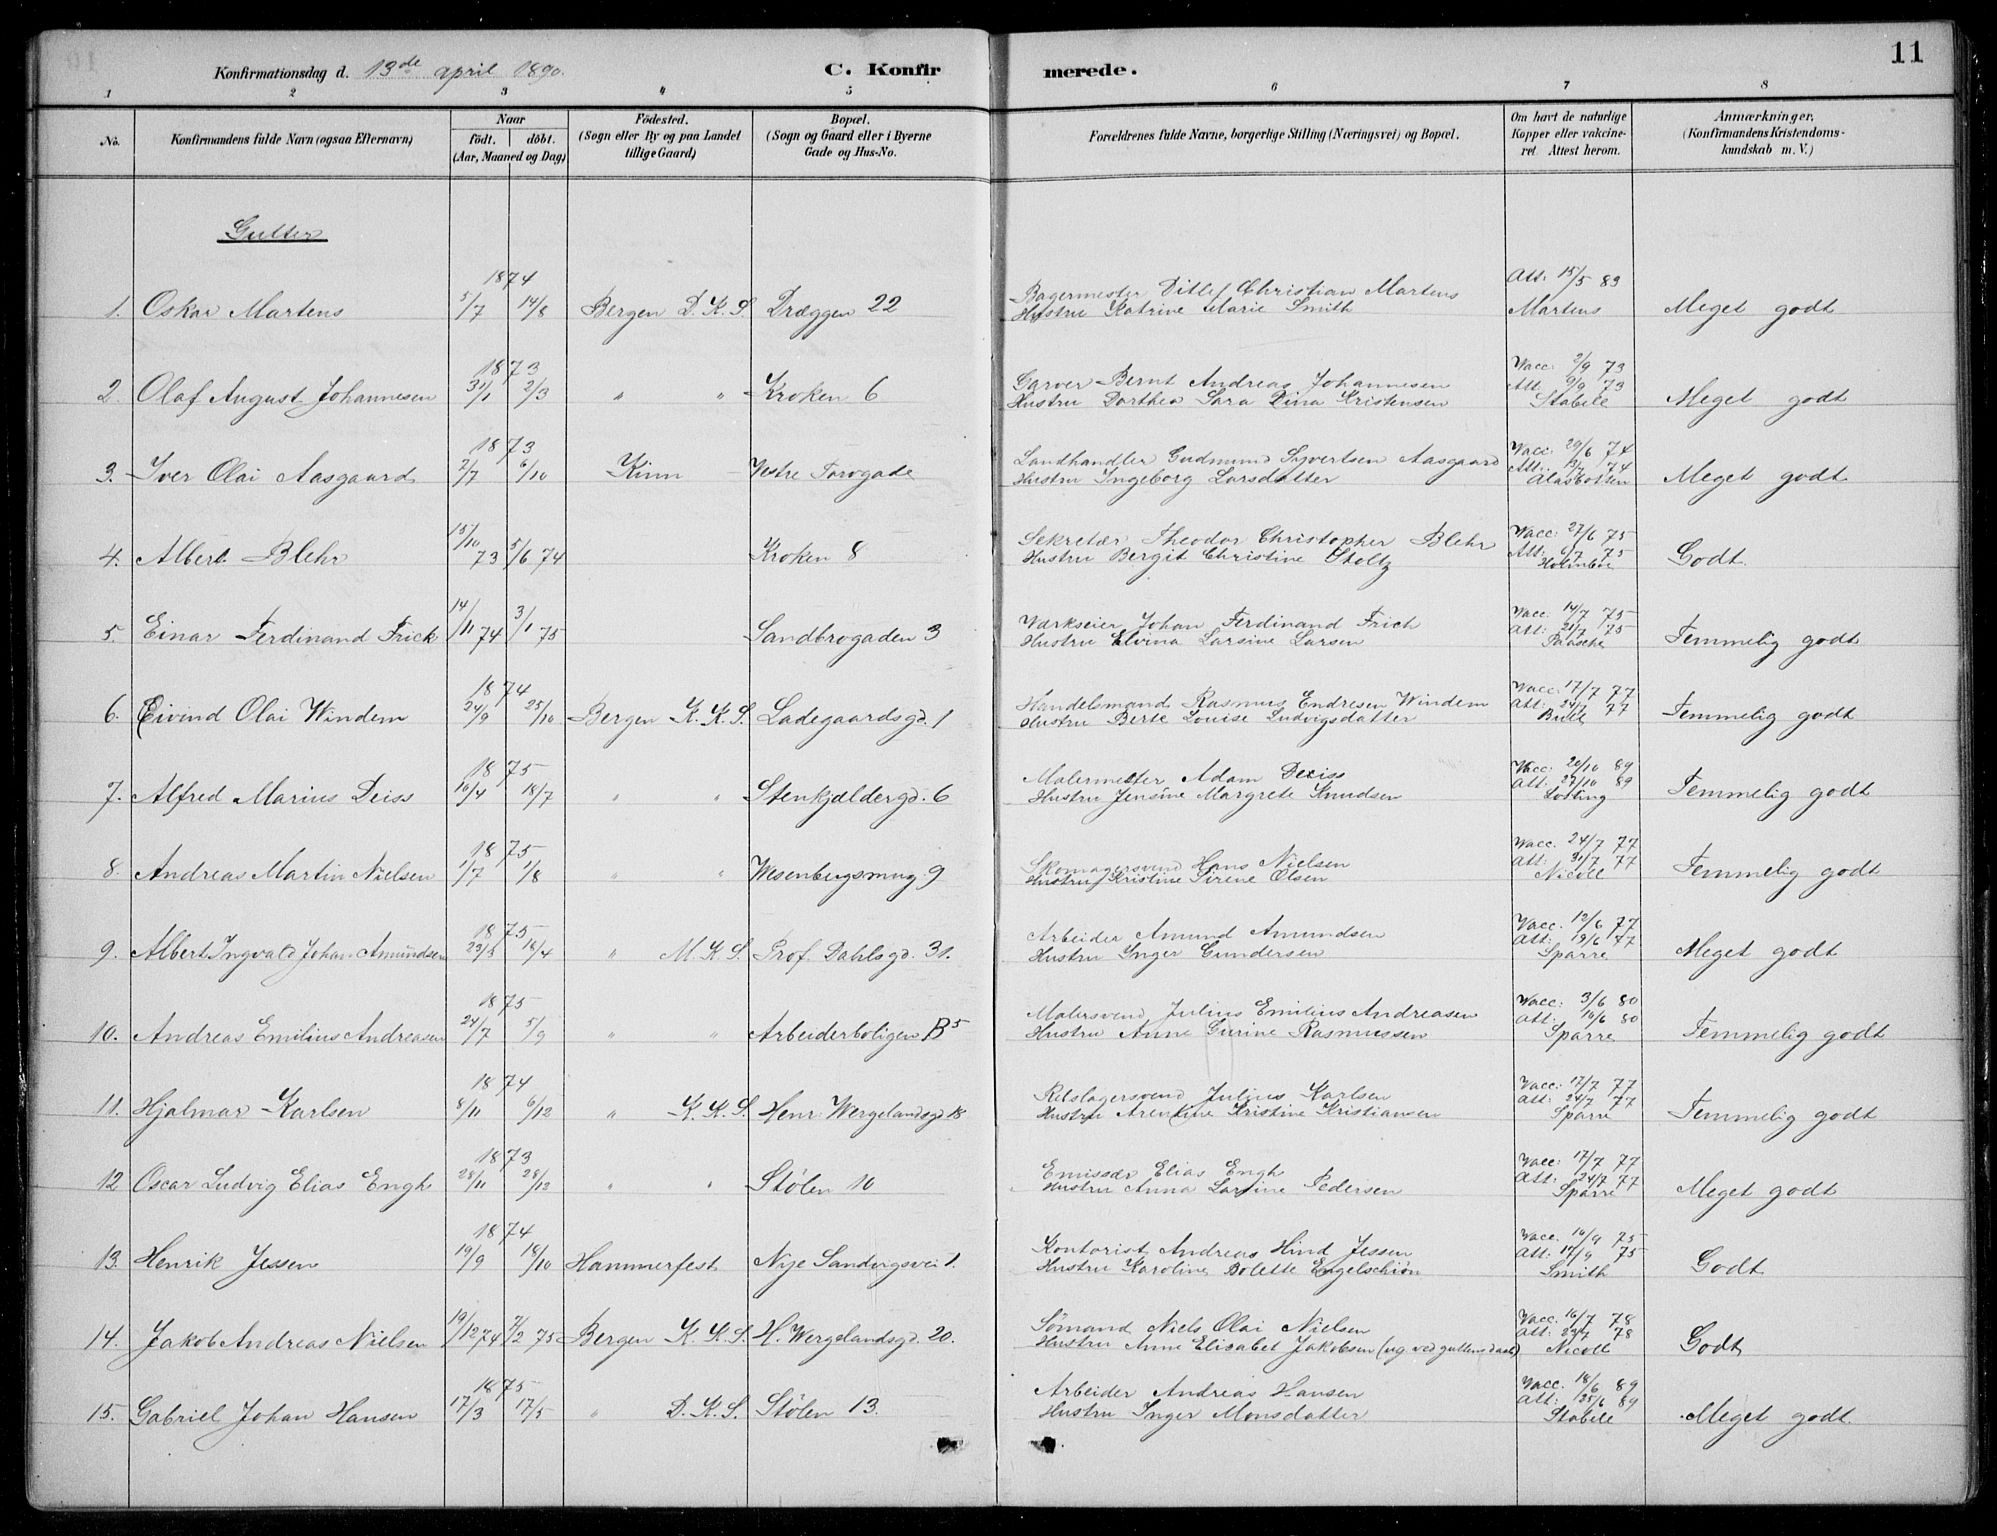 Konfirmationsdag d. 13de april 1890.
C. Konfirmerede.
11
1 2 3 4 5 6 7 8
No. Konfirmandens fulde Navn (ogsaa Efternavn) Naar født. døbt. (Aar, Maaned og Dag) Fødested. (Sogn eller By og paa Landet tillige Gaard) Bopæl. (Sogn og Gaard eller i Byerne Gade og Hus-No. Forældrenes fulde Navne, borgerlige Stilling (Næringsvei) og Bopæl. Om havt de naturlige Kopper eller vakcineret. Attest herom. Anmærkninger, (Konfirmandens Kristendomskundskab m. V.)
Gutter
1874
1. Oskar Martens 5/7 14/8 Bergen D. K. S. Dræggen 22 Bagermester Ditlef Christian Martens Hustru Katrine Marie Smith Att: 15/5 89 Martens Meget godt
1873
2. Olaf August Johannesen 31/1 2/3 " " Kroken 6 Garver Bernt Andreas Johannesen Hustru Dorthea Sara Dina Kristensen Vacc: 2/9 73 Att: 9/9 73 Stabell Meget godt
1873
3. Iver Olai Aasgaard 2/7 6/10 Kinn Vestre Torvgade Landhandler Gudmund Syvertsen Aasgaard Hustru Ingeborg Larsdatter Vacc: 29/6 74 Att: 74 Meget godt
4. Albert Blehr 15/10 73 5/6 74 Kroken 8 Sekretær Theodor Christopher Blehr Hustru Bergit Christine Stoltz Vacc: 27/6 75 Att: 6/7 75 Holmboe Godt.
5. Einar Ferdinand Frick 14/11 74 3/1 75 Sandbrogaden 3 Værkseier Johan Ferdinand Frich Hustru Elvina Larsine Larsen Vacc: 14/7 75 Att: 21/7 75 Paasche Temmelig godt
1874
6. Eivind Olai Windem 24/9 25/10 Bergen K. K. S. Ladegaardsgd. 1 Handelsmand Rasmus Endresen Windem Hustru Berte Louise Ludvigsdatter Vacc: 17/7 77 Att: 24/7 77 Bull Temmelig godt
1875
7. Alfred Marius Deiss 10/4 18/7 " " Stenkjældergd. 6 Malermester Adam Deiss Hustru Jensine Margrete Knudsen Vacc: 20/10 89 Att: 27/10 89 Losting Temmelig godt
1875
8. Andreas Martin Nielsen 1/7 1/8 " " Wesenbergsmug 9 Skomagersvend Hans Nielsen Hustru Kristine Sirene Olsen Vacc: 24/7 77 Att: 31/7 77 Nicoll Temmelig godt
1875
9. Albert Ingvald Johan Amundsen 23/3 18/4 " M. K. S. Prof. Dahlsgd. 31. Arbeider Amund Amundsen Hustru Inger Gundersen Vacc: 12/6 77 Att: 19/6 77 Sparre Meget godt
1875
10. Andreas Emilius Andreasen 24/7 5/9 " " Arbeiderboligen B5 Malersvend Julius Emilius Andreasen Hustru Anne Gurine Rasmussen Vacc: 3/6 80 Att: 10/6 80 Sparre Temmelig godt
1874
11. Hjalmar Karlsen 8/11 6/12 " K. K. S. Henr: Wergelandsgd 18 Rebslagersvend Julius Karlsen Hustru Arentine Kristine Kristiansen Vacc: 17/7 77 Att: 24/7 77 Sparre Temmelig godt
1873
12 Oscar Ludvig Elias Engh 28/11 28/12 " " Stølen 10 Emissær Elias Engh Hustru Anna Larsine Pedersen Vacc: 17/7 77 Att: 24/7 77 Sparre Meget godt
1874
13. Henrik Jessen 19/9 18/10 Hammerfest Nye Sandvigsvei 1. Kontorist Andreas Hind Jessen Hustru Karoline Bolette Engelschiøn Vacc: 10/9 75 Att: 17/9 75 Smith Godt
14. Jakob Andreas Nielsen 19/12 74 7/2 75 Bergen K. K. S. H. Wergelandsgd. 20. Sømand Niels Olai Nielsen Hustru Anne Elisabet Jakobsen (ug ved guttens daab) Vacc: 16/7 78 Att: 23/7 78 Nicoll Godt
1875
15. Gabriel Johan Hansen 17/3 17/5 " D. K. S. Stølen 13. Arbeider Andreas Hansen Hustru Inger Monsdatter Vacc. 18/6 89 Att: 25/6 89 Stabell Meget godt